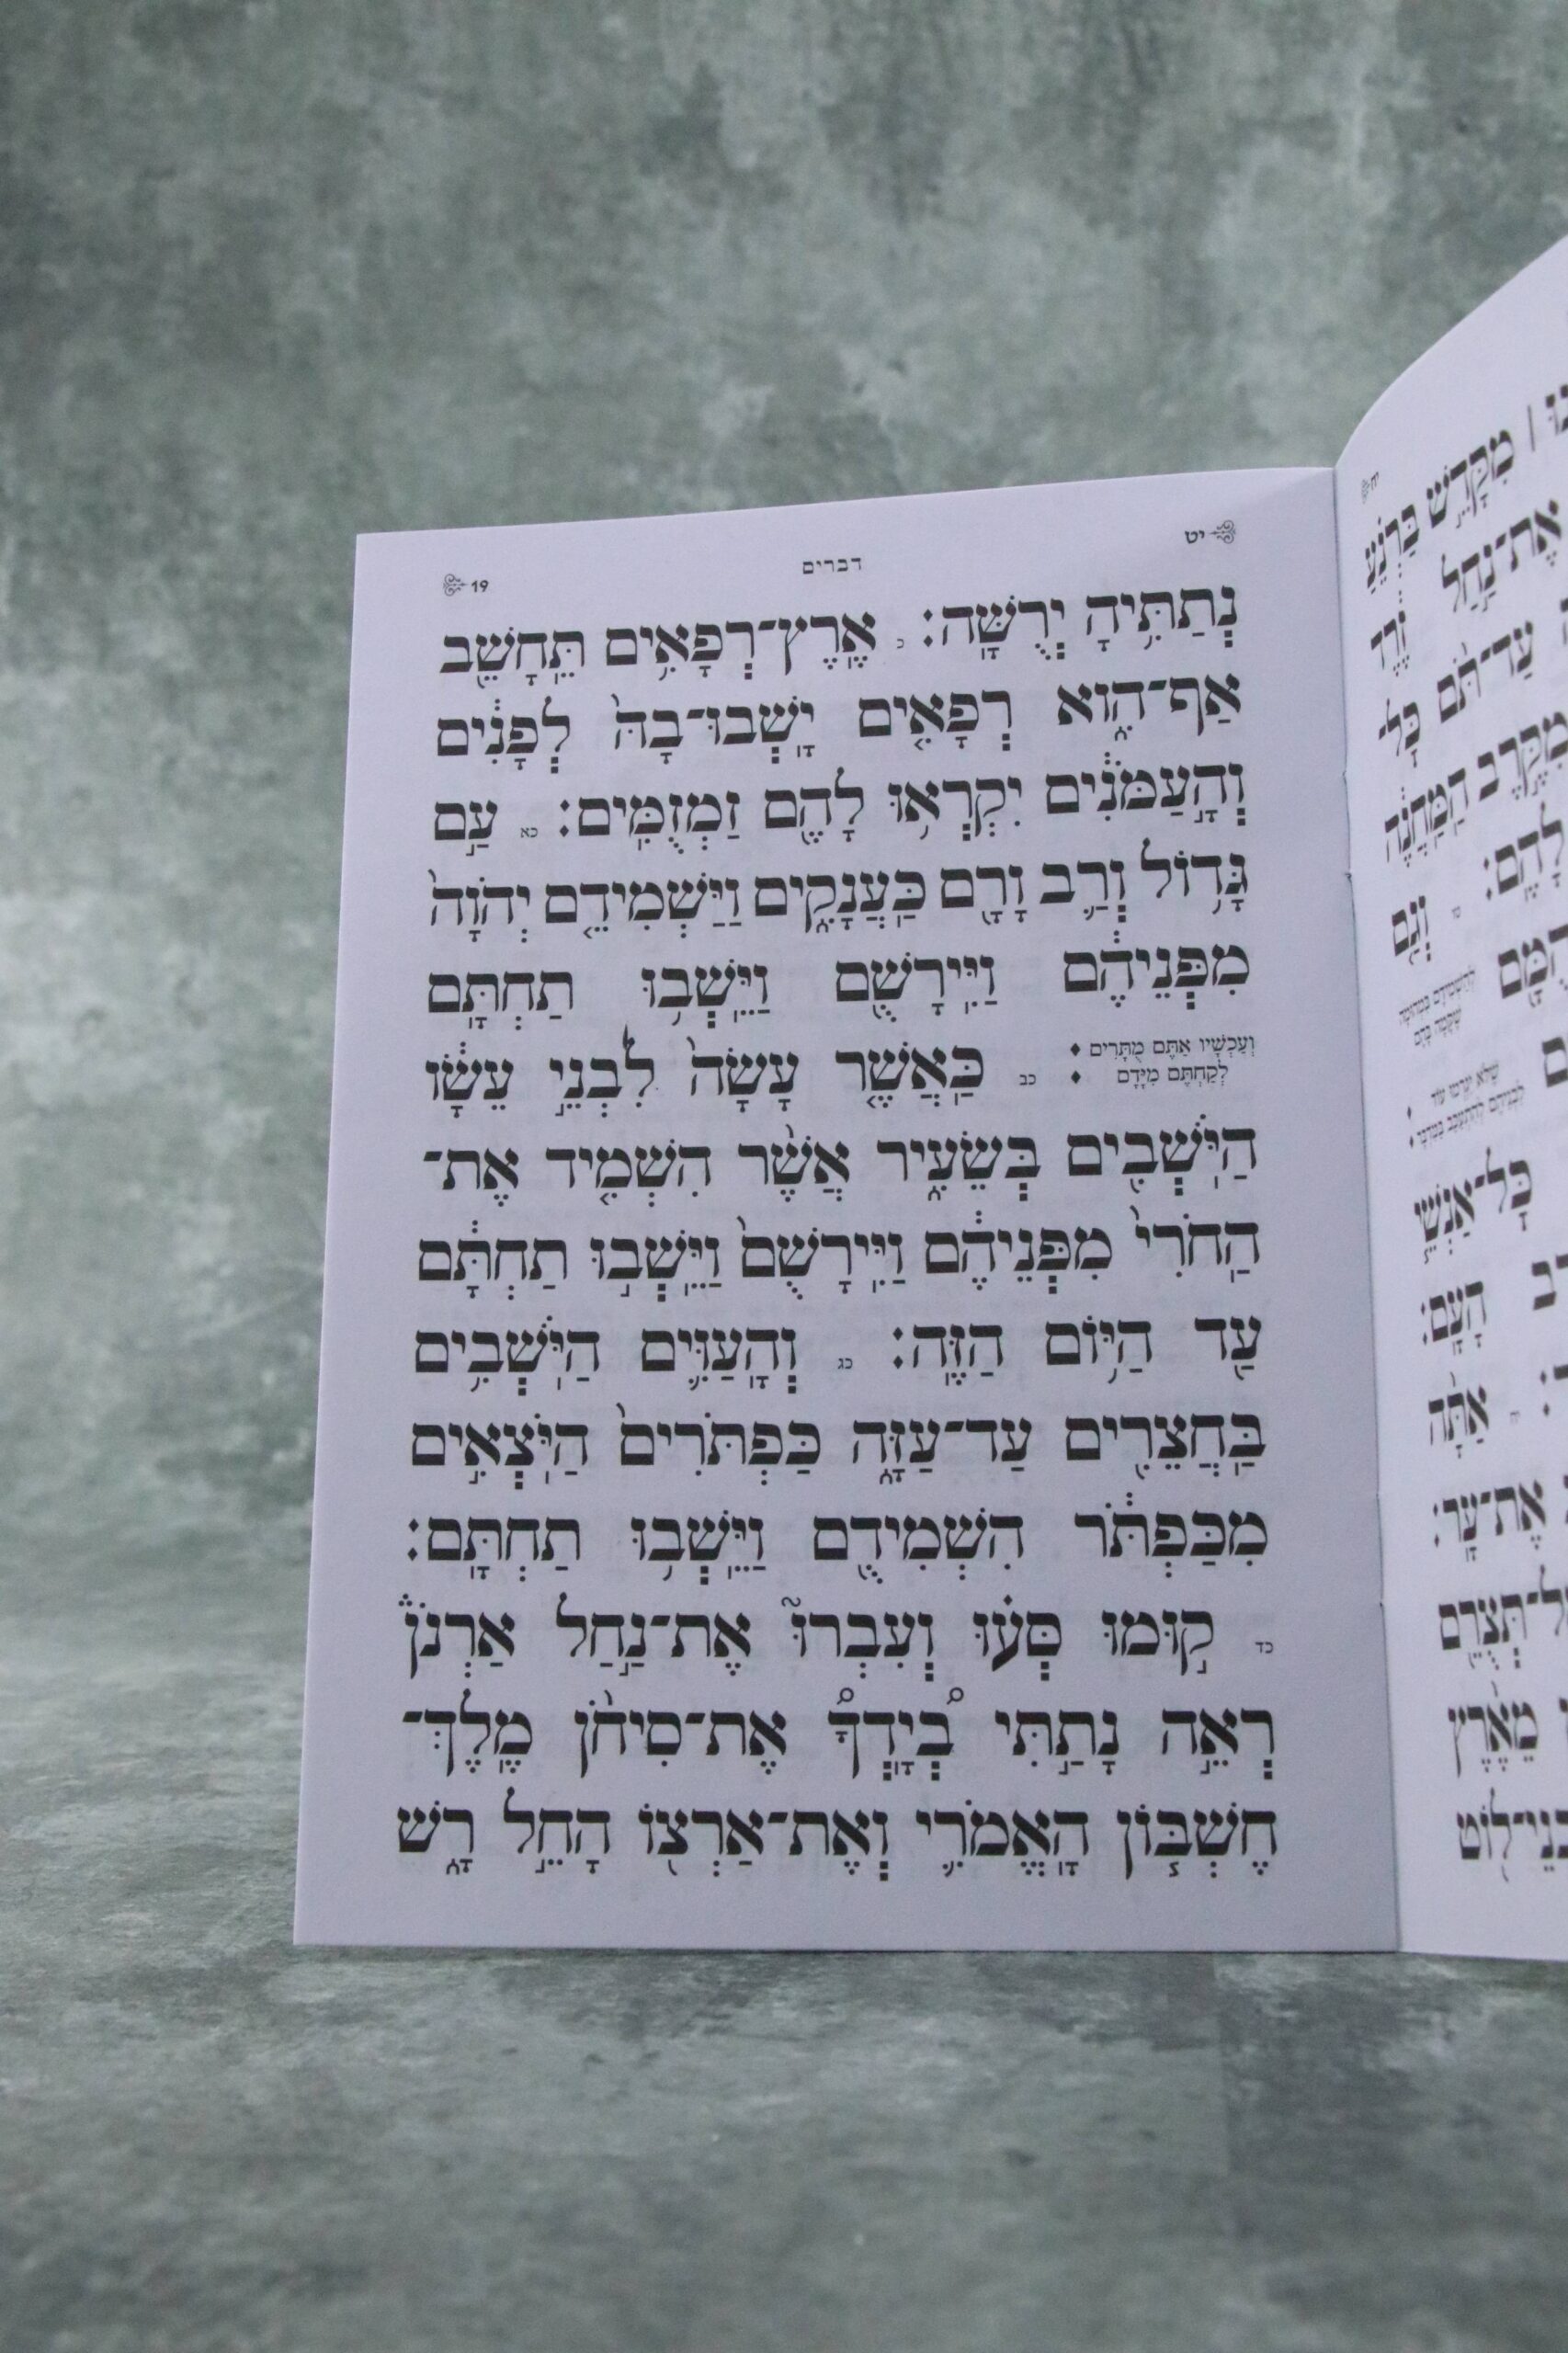 יט
דברים
19
נְתַתִּ֥יהָ יְרֻשָּֽׁה׃ כ אֶֽרֶץ־רְפָאִ֥ים תֵּחָשֵׁ֖ב
אַף־הִ֑וא רְפָאִ֤ים יָֽשְׁבוּ־בָהּ֙ לְפָנִ֔ים
וְהָ֣עַמֹּנִ֔ים יִקְרְא֥וּ לָהֶ֖ם זַמְזֻמִּֽים׃ כא עַ֣ם
גָּד֥וֹל וְרַ֛ב וָרָ֖ם כַּֽעֲנָקִ֑ים וַיַּשְׁמִידֵ֤ם יְהֹוָה֙
מִפְּנֵיהֶ֔ם וַיִּֽירָשֻׁ֖ם וַיֵּֽשְׁב֥וּ תַחְתָּֽם
וְעַכְשָׁיו אַתֶּם מֻתָּרִים
לְקַחְתָּם מִיָּדָם
׃ כב כַּֽאֲשֶׁ֤ר עָשָׂה֙ לִבְנֵ֣י עֵשָׂ֔ו
הַיֹּֽשְׁבִ֖ים בְּשֵׂעִ֑יר אֲשֶׁ֨ר הִשְׁמִ֤יד אֶת־
הַֽחֹרִי֙ מִפְּנֵיהֶ֔ם וַיִּֽירָשֻׁם֙ וַיֵּֽשְׁב֣וּ תַחְתָּ֔ם
עַ֖ד הַיּ֥וֹם הַזֶּֽה׃ כג וְהָֽעַוִּ֛ים הַיֹּֽשְׁבִ֥ים
בַּֽחֲצֵרִ֖ים עַד־עַזָּ֑ה כַּפְתֹּרִים֙ הַיֹּֽצְאִ֣ים
מִכַּפְתֹּ֔ר הִשְׁמִידֻ֖ם וַיֵּֽשְׁב֥וּ תַחְתָּֽם׃
כד ק֣וּמוּ סְּע֗וּ וְעִבְרוּ֮ אֶת־נַ֣חַל אַרְנֹן֒
רְאֵ֣ה נָתַ֣תִּי בְ֠יָֽדְךָ֠ אֶת־סִיחֹ֨ן מֶֽלֶךְ־
חֶשְׁבּ֧וֹן הָֽאֱמֹרִ֛י וְאֶת־אַרְצ֖וֹ הָחֵ֣ל רָ֑שׁ
יח
מִקָּדֵ֣שׁ בַּרְנֵ֗עַ
אֶת־נַ֣חַל
זֶ֔רֶד
עַד־תֹּ֨ם כָּל־
מִקֶּ֣רֶב הַֽמַּחֲנֶ֔ה
לָהֶֽם׃
וְגַ֥ם
כָּל־אַנְשֵׁ֧י
הָעָֽם׃
אַתָּ֨ה
אֶת־עָֽר׃
מֵאֶ֨רֶץ
ל֖וֹט